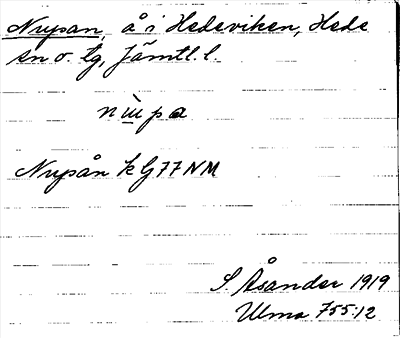 Nupan, å i Hedeviken, Hede
sn o. tg, Jämtl. l.
Nupån kG77NM
S. Åsander 1919
Ulma 755:12